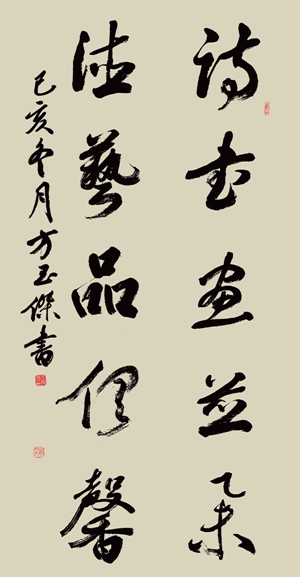 詩書畫並
德藝品俱馨
己亥冬月方玉傑書